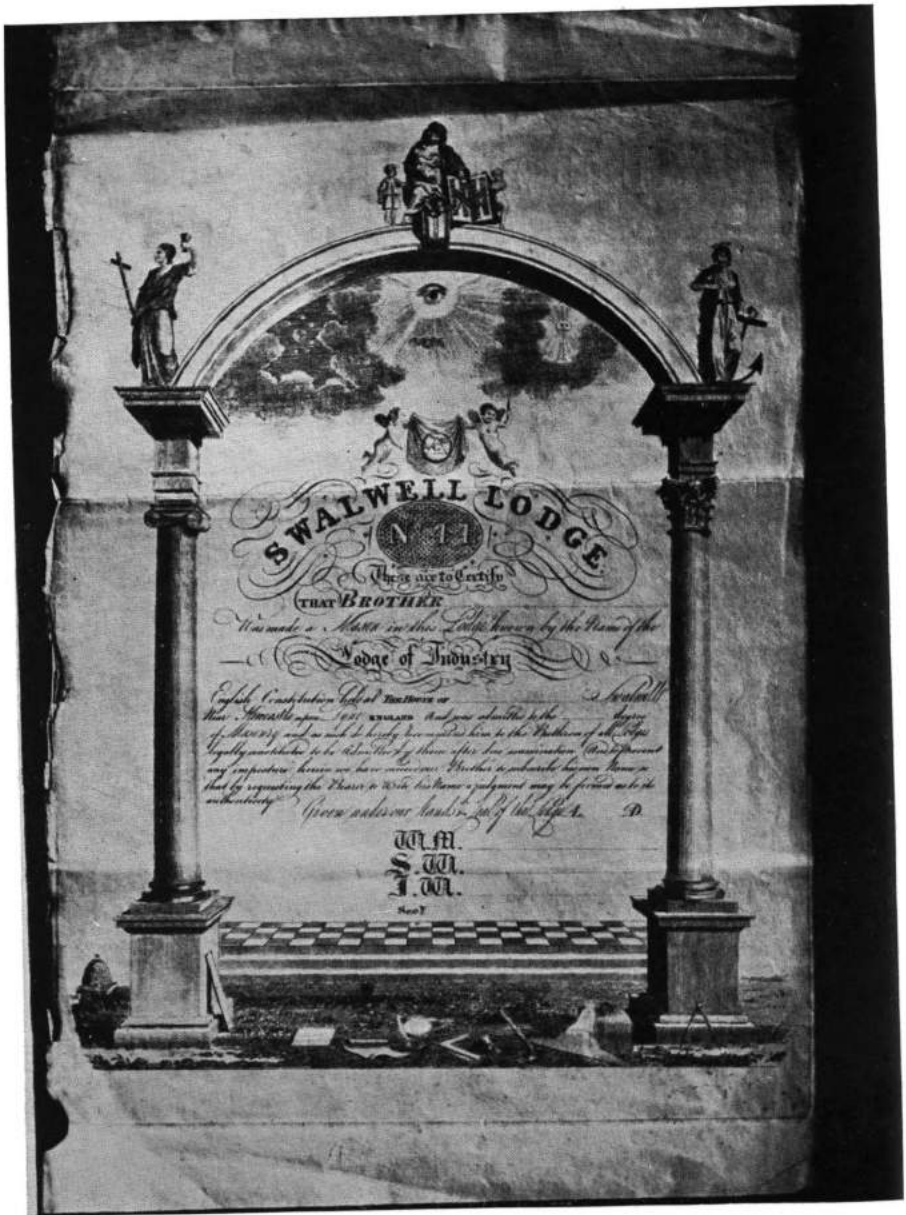 SWALWELL LODGE
No 44
These are to Certify
THAT BROTHER
Was made a Mason in this Lodge known by the Name of the
Lodge of Industry
English Constitution held at THE HOUSE OF Swalwell
Near Newcastle upon Tyne ENGLAND And was admitted to the degree
of Masonry and as such do hereby recommend him to the Brethren of all Lodges
legally constituted to be admitted of them after due examination And to prevent
any imposture herein we have our Brother to subscribe his own Name
that by requesting the Bearer to Write his Name a judgment may be formed as to its
authenticity
Given under our Hands & Seal of the Lodge A. D.
W.M.
S.W.
J.W.
Secy